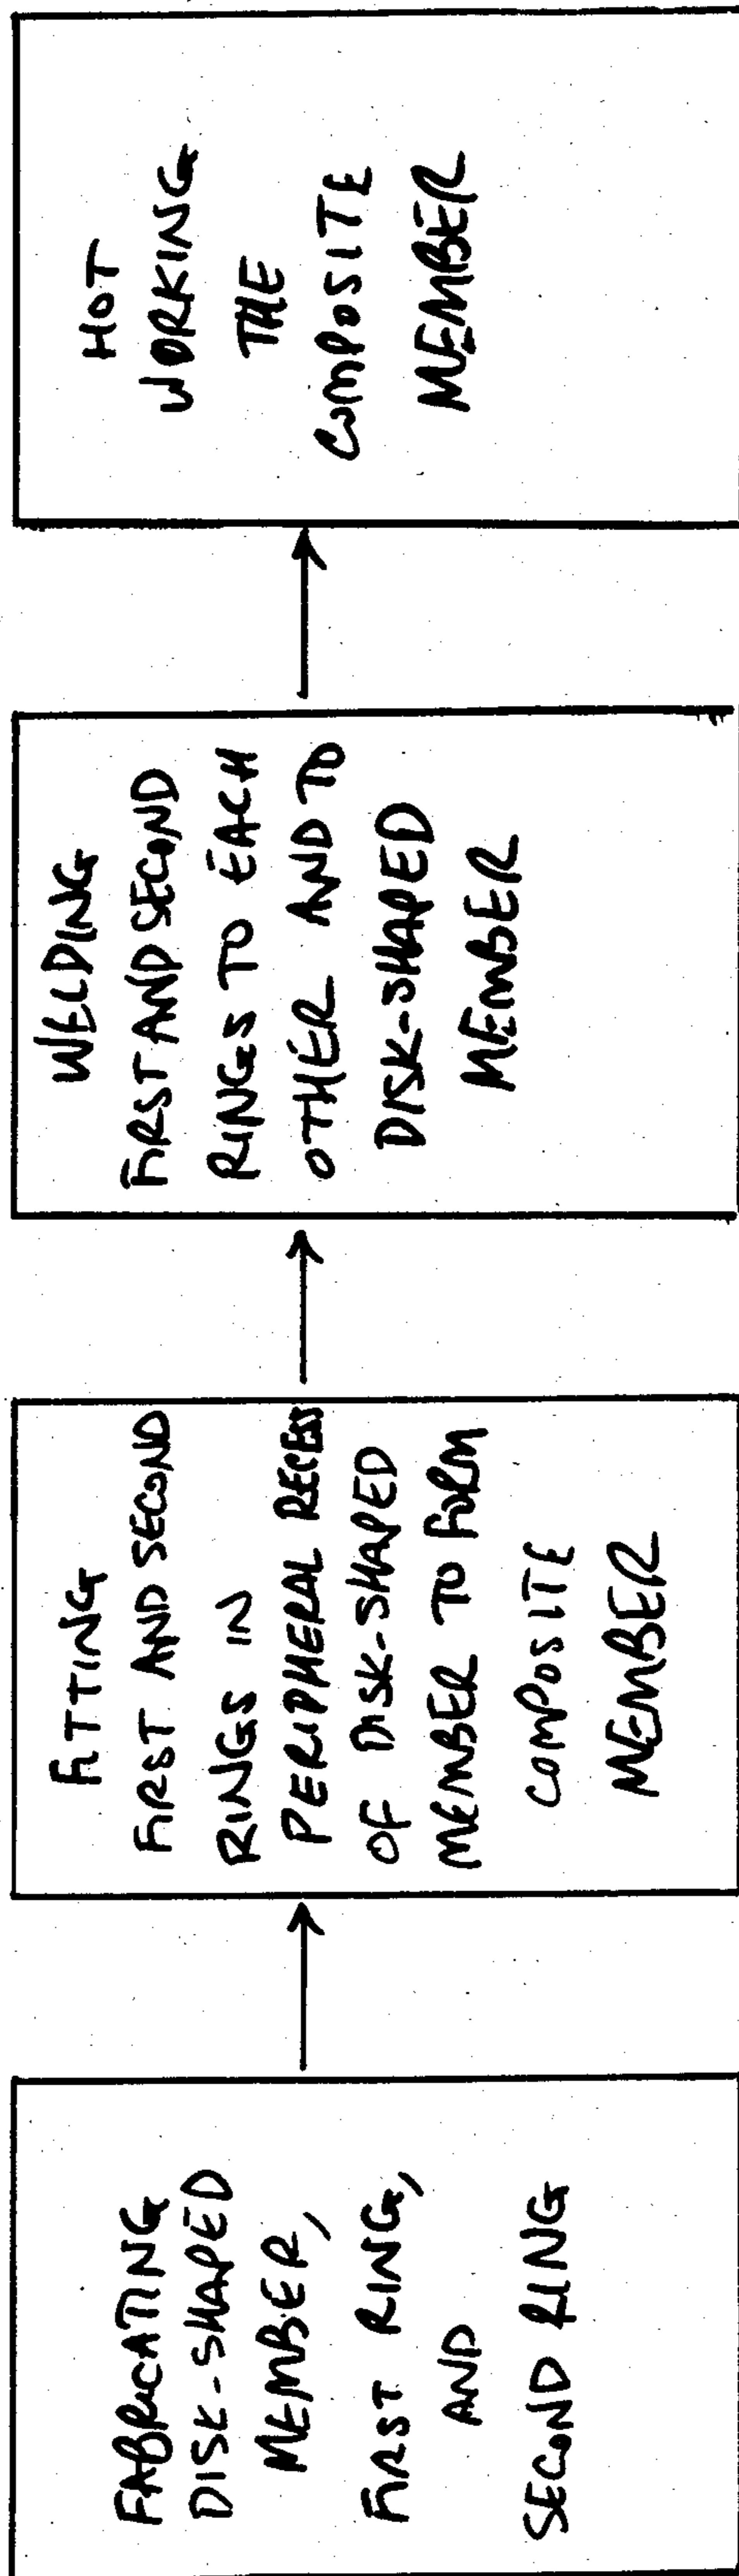 FABRICATING
DISK-SHAPED
MEMBER,
FIRST RING,
AND
SECOND RING
FITTING
FIRST AND SECOND
RINGS IN
PERIPHERAL RECESS
OF DISK-SHAPED
MEMBER TO FORM
COMPOSITE
MEMBER
WELDING
FIRST AND SECOND
RINGS TO EACH
OTHER AND TO
DISK-SHAPED
MEMBER
HOT
WORKING
THE
COMPOSITE
MEMBER